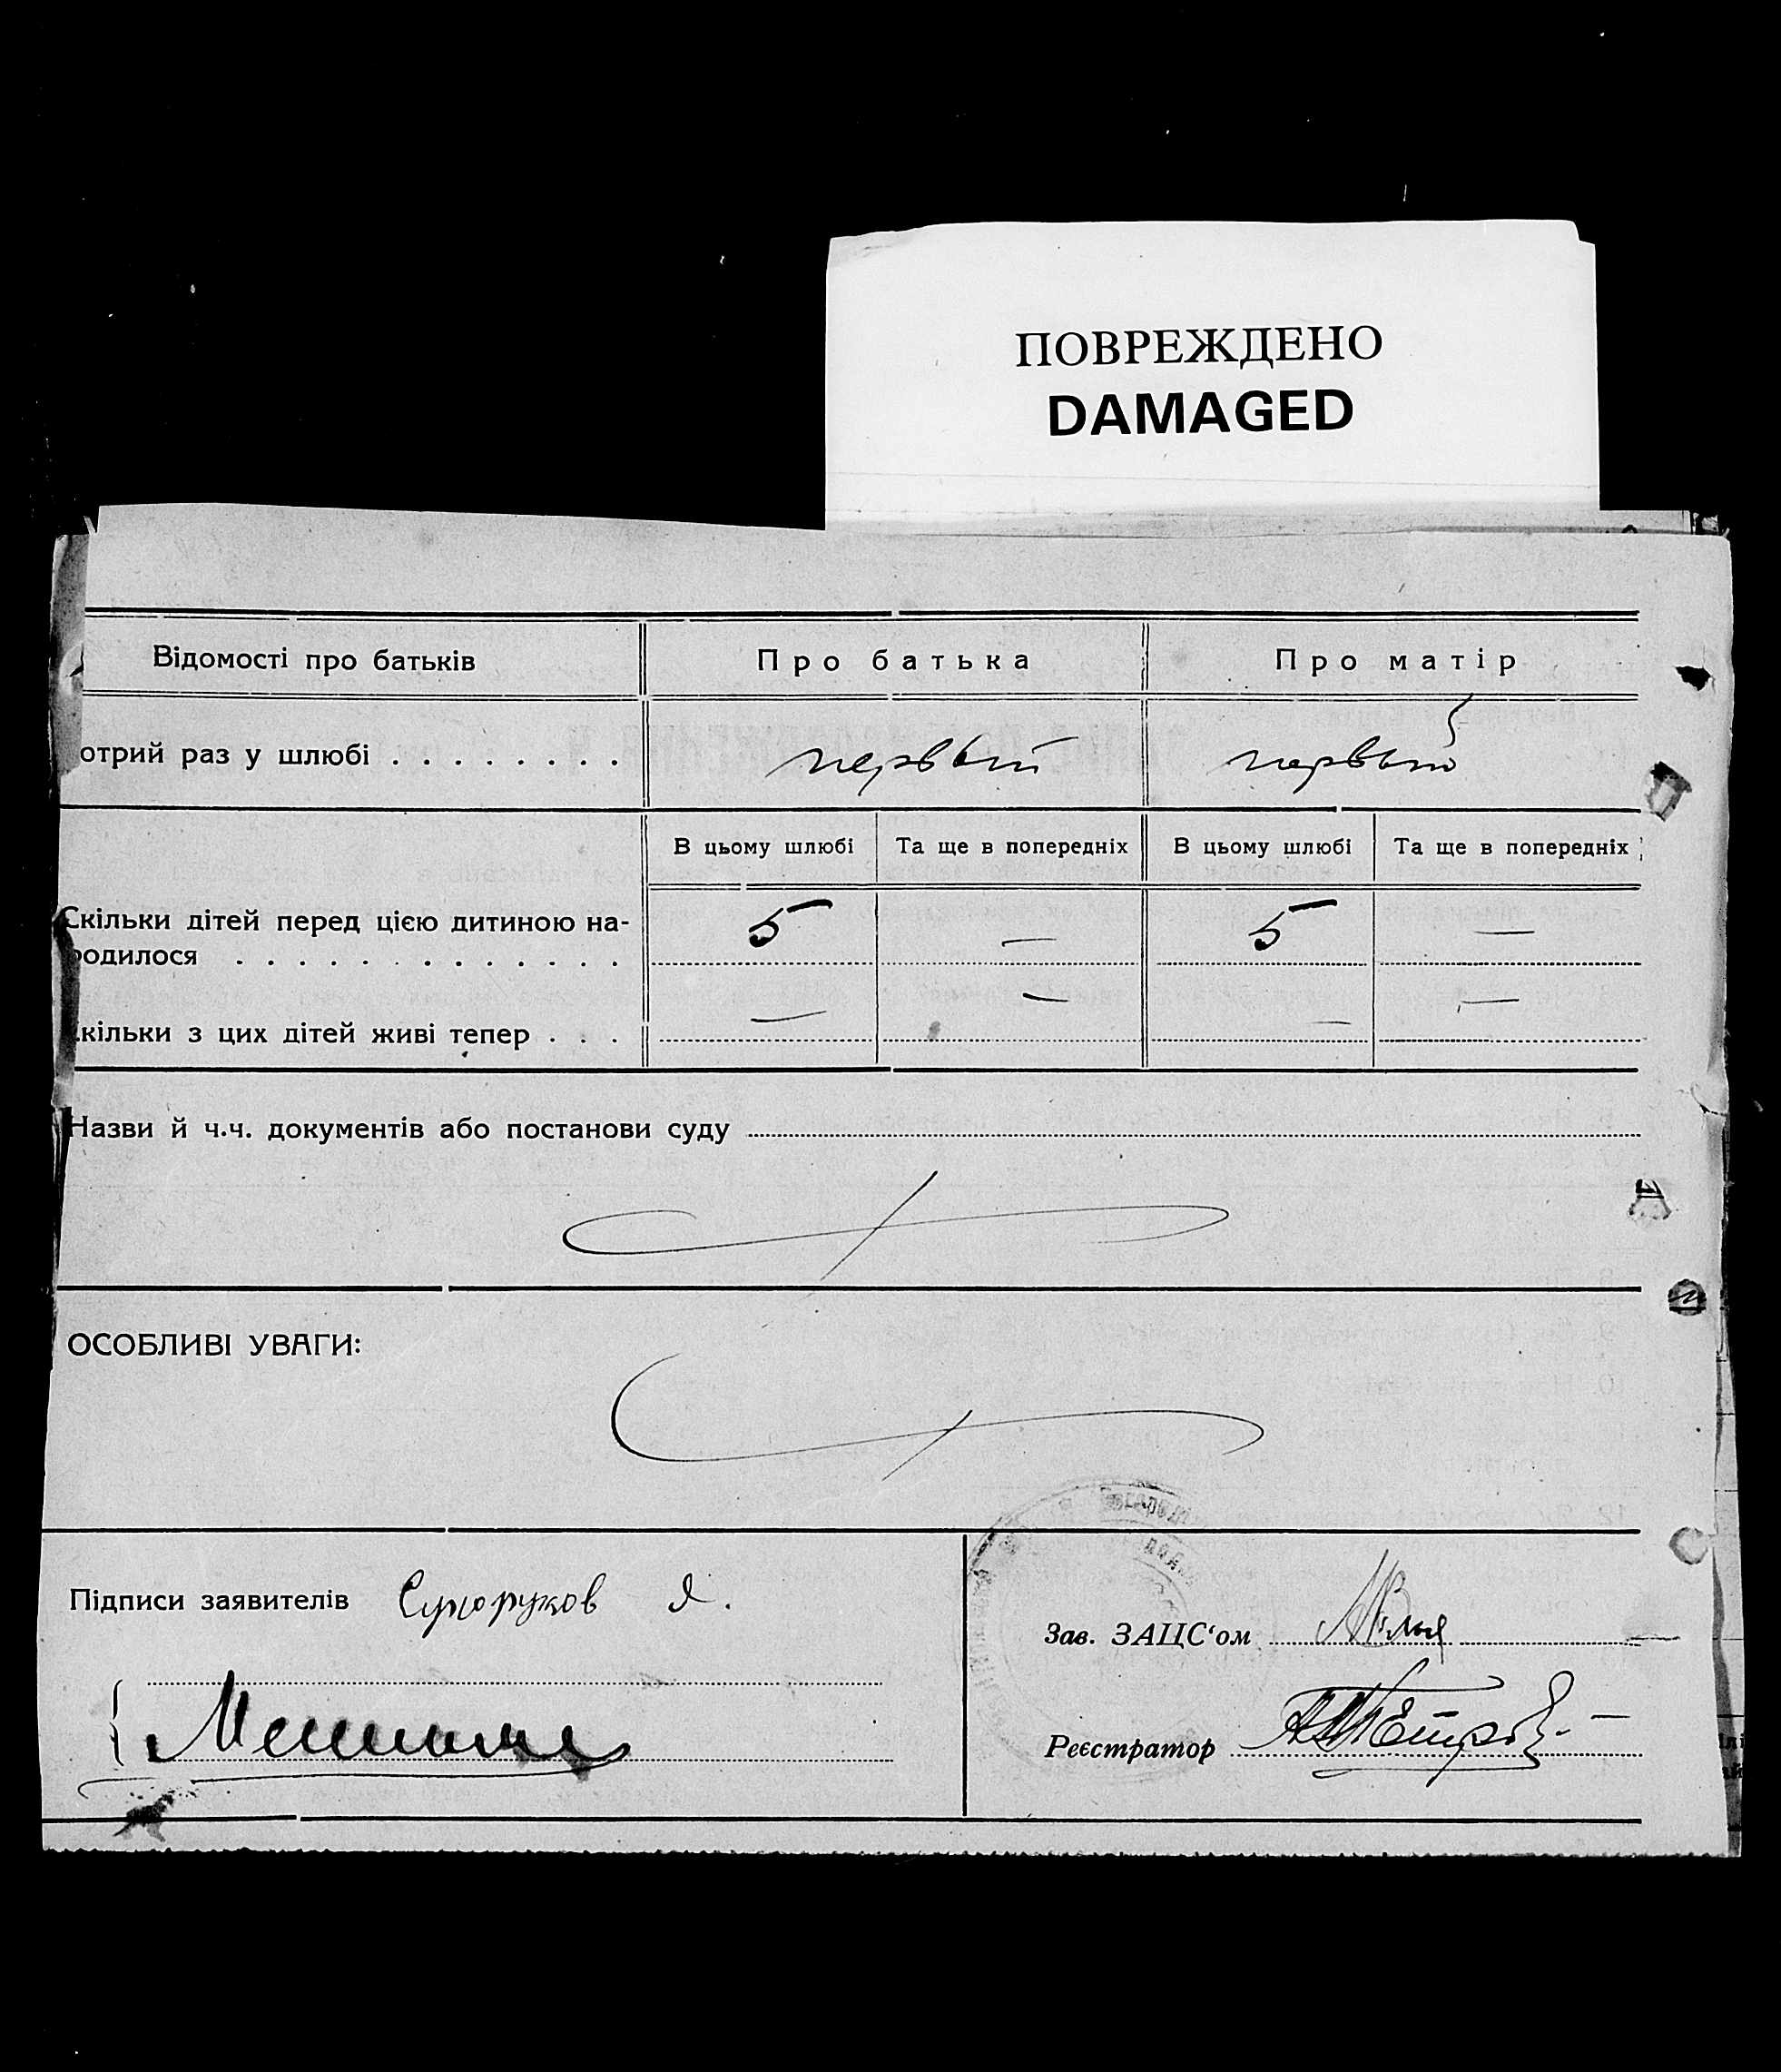 ПОВРЕЖДЕНО
DAMAGED
Відомості про батьків Про батька Про матір
отрий раз у шлюбі . . . . . . . . первый первый
В цьому шлюбі Та ще в попередніх В цьому шлюбі Та ще в попередніх
Скільки дітей перед цією дитиною на-
родилося . . . . . . . . . . . . . . 5 — 5 —
кільки з цих дітей живі тепер . . . — — — —
Назви й ч.ч. документів або постанови суду
ОСОБЛИВІ УВАГИ:
Підписи заявителів Супоруков Я.
Зав. ЗАЦС‘ом
Реєстратор